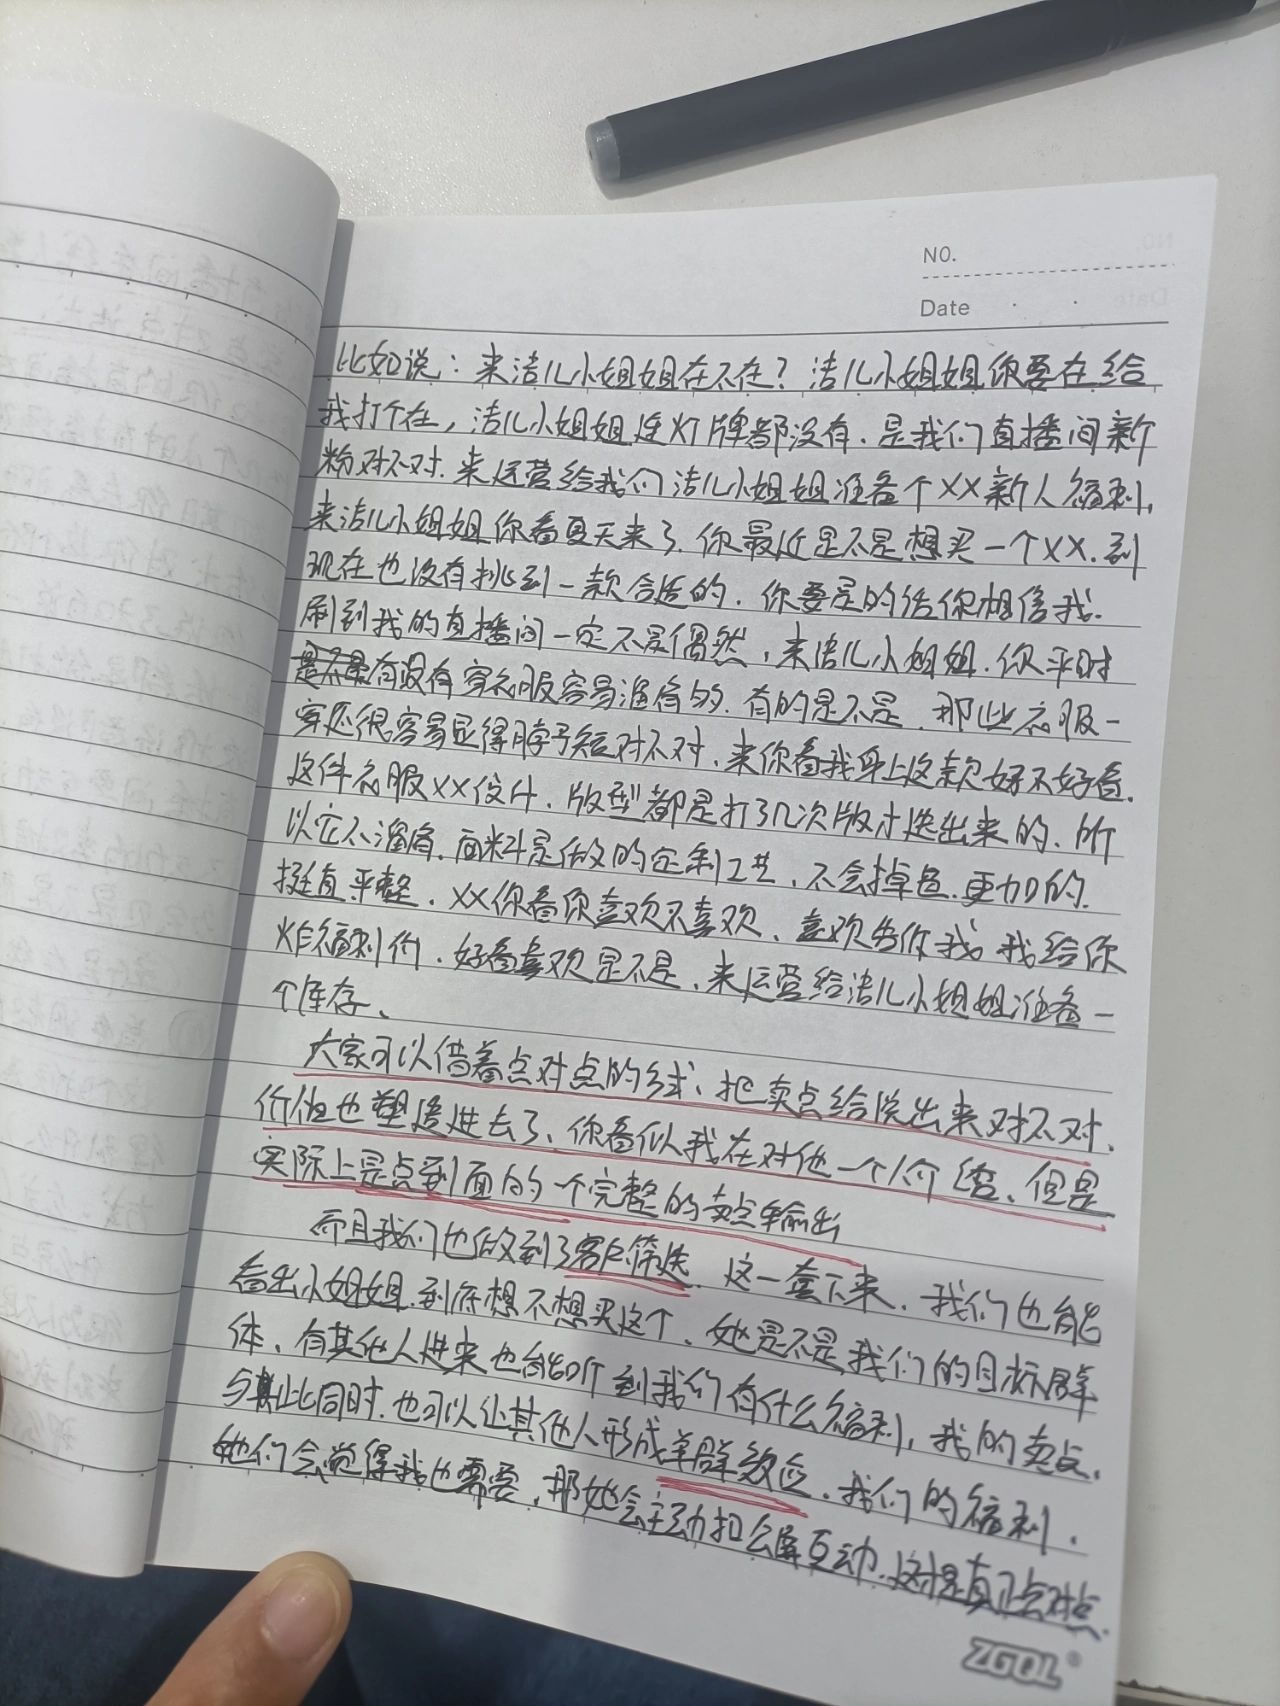 NO.
Date
比如说：来洁儿小姐姐在不在？洁儿小姐姐你要在给
我打个在，洁儿小姐姐连灯牌都没有、是我们直播间新
粉对不对、来运营给我们洁儿小姐姐准备个XX新人福利，
来洁儿小姐姐你看夏天来了、你最近是不是想买一个XX、到
现在也没有挑到一款合适的、你要是的话你相信我、
刷到我的直播间一定不是偶然，来洁儿小姐姐、你平时
有没有穿衣服容易溜肩的、有的是不是、那些衣服一
穿还很容易显得脖子短对不对、来你看我身上这款好不好看、
这件衣服XX设计、版型都是打了几次版才选出来的、所
以它不溜肩、面料是做的定制工艺、不会掉色、更加的、
挺直平整、XX你看你喜欢不喜欢、喜欢告诉我、我给你
炸福利价、好看喜欢是不是、来运营给洁儿小姐姐准备一
个库存、
大家可以借着点对点的形式、把卖点给说出来对不对、
价值也塑造进去了、你看似我在对他一个人介绍、但是
实际上是点到面的一个完整的卖点输出
而且我们也做到了客户筛选、这一套下来、我们也能
看出小姐姐、到底想不想买这个、她是不是我们的目标群
体、有其他人进来也能听到我们有什么福利，我的卖点、
与此同时、也可以让其他人形成羊群效应、我们的福利、
她们会觉得我也需要、那她会主动扣公屏互动、这才是真正点对点、
ZGQL®